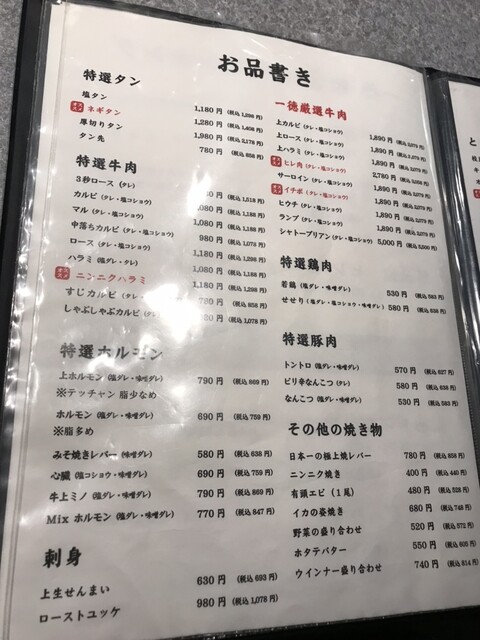 お品書き
特選タン
塩タン 1,180円 (税込1,298円)
ネギタン 1,280円 (税込1,408円)
厚切りタン 1,980円 (税込2,178円)
タン先 780円 (税込858円)
特選牛肉
3秒ロース (タレ) (税込1,518円)
カルビ (タレ・塩コショウ) 1,080円 (税込1,188円)
マル (タレ・塩コショウ) 1,080円 (税込1,188円)
中落ちカルビ (タレ・塩コショウ) 980円 (税込1,078円)
ロース (タレ・塩コショウ) 1,180円 (税込1,298円)
ハラミ (塩ダレ・タレ) 1,080円 (税込1,188円)
オススメ ニンニクハラミ 1,180円 (税込1,298円)
すじカルビ (タレ・塩コショウ) 780円 (税込858円)
しゃぶしゃぶカルビ (タレ) (税込1,078円)
特選ホルモン
上ホルモン (塩ダレ・味噌ダレ) 790円 (税込869円)
※テッチャン 脂少なめ
ホルモン (塩ダレ・味噌ダレ) 690円 (税込759円)
※脂多め
みそ焼きレバー (味噌ダレ) 580円 (税込638円)
心臓 (塩コショウ・味噌ダレ) 690円 (税込759円)
牛上ミノ (塩ダレ・味噌ダレ) 790円 (税込869円)
Mix ホルモン (塩ダレ・味噌ダレ) 770円 (税込847円)
刺身
上生せんまい 630円 (税込693円)
ローストユッケ 980円 (税込1,078円)
一徳厳選牛肉
上カルビ (タレ・塩コショウ) 1,890円 (税込2,079円)
上ロース (タレ・塩コショウ) 1,890円 (税込2,079円)
上ハラミ (タレ・塩コショウ) 1,890円 (税込2,079円)
ヒレ肉 (タレ・塩コショウ) 2,780円 (税込3,058円)
サーロイン (タレ・塩コショウ) 1,890円 (税込2,079円)
イチボ (タレ・塩コショウ) 1,890円 (税込2,079円)
ヒウチ (タレ・塩コショウ) 1,890円 (税込2,079円)
ランプ (タレ・塩コショウ) 1,890円 (税込2,079円)
シャトーブリアン (タレ・塩コショウ) 5,000円 (税込5,500円)
特選鶏肉
若鶏 (塩ダレ・味噌ダレ) 530円 (税込583円)
せせり (塩ダレ・塩コショウ・味噌ダレ) 580円 (税込638円)
特選豚肉
トントロ (塩ダレ・味噌ダレ) 570円 (税込627円)
ピリ辛なんこつ (タレ) 580円 (税込638円)
なんこつ (塩ダレ・味噌ダレ) 530円 (税込583円)
その他の焼き物
日本一の極上焼レバー 780円 (税込858円)
ニンニク焼き 400円 (税込440円)
有頭エビ (1尾) 480円 (税込528円)
イカの姿焼き 680円 (税込748円)
野菜の盛り合わせ 520円 (税込572円)
ホタテバター 550円 (税込605円)
ウインナー盛り合わせ 740円 (税込814円)